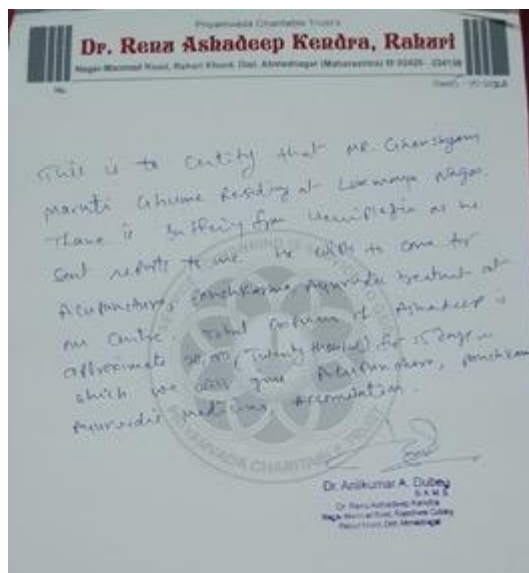 Priyamvada Charitable Trust's
Dr. Renu Ashadeep Kendra, Rahuri
Nagar-Manmad Road, Rahuri Khurd, Dist. Ahmednagar (Maharashtra)
No.
This is to Certify that MR. Ghanshyam
Maruti Ghume Residing at Nagar
Thane is Suffering from Hemiplegia as he
Sent reports to me he wish to come for
Acupuncture, panchkarma, Ayurvedic treatment at
our Centre Total of Ashadeep is
approximate 20,000 (Twenty thousand) for 15 days in
which we will give Acupuncture, panchkarma
Ayurvedic medicines
PRIYAMVADA CHARITABLE TRUST
Dr. Anilkumar A. Dubey
B.A.M.S.
Dr. Renu Ashadeep Kendra
Nagar Manmad Road,
Rahuri Khurd, Dist. Ahmednagar